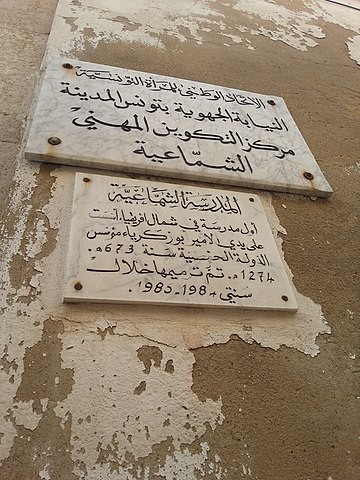 الاتحاد الوطني للمرأة التونسية
النيابة الجهوية بتونس المدينة
مركز التكوين المهني
الشمّاعية
المدرسة الشمّاعيّة
أول مدرسة في شمال افريقيا، أسست
على يدي الأمير بوزكرياء مؤسس
الدولة الحفصية سنة 673هـ.
1274م. تمّ ترميمها خلال
سنتي 1984-1985.